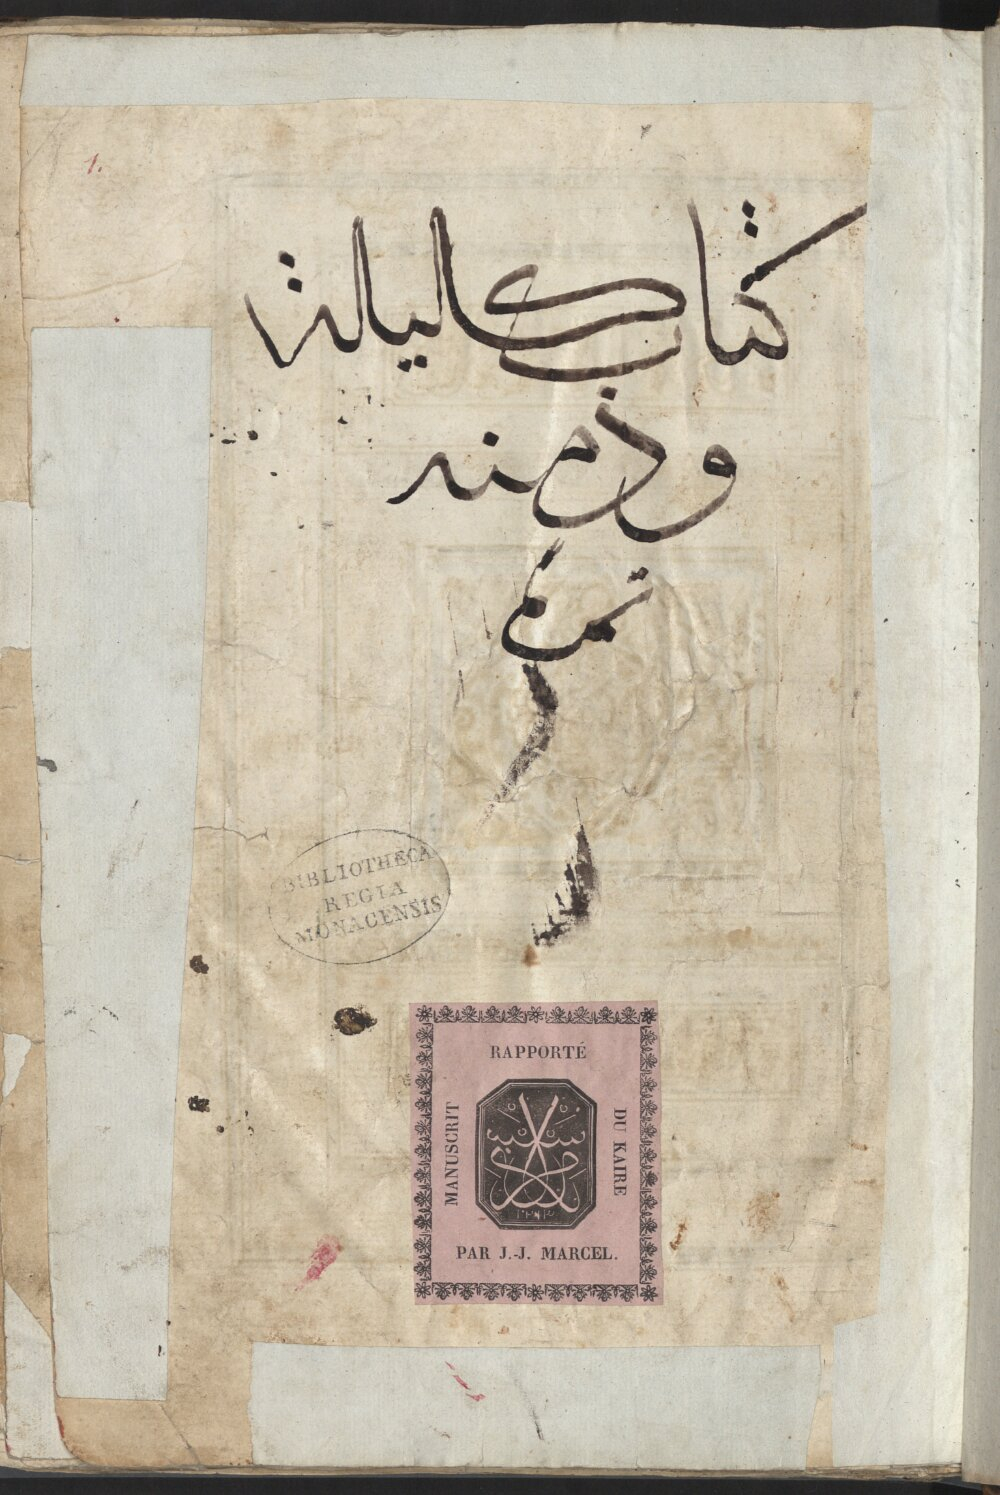 1.
كتاب كليلة
وذمنه
BIBLIOTHECA
REGIA
MONACENSIS
RAPPORTÉ
MANUSCRIT
DU KAIRE
PAR J.-J. MARCEL.